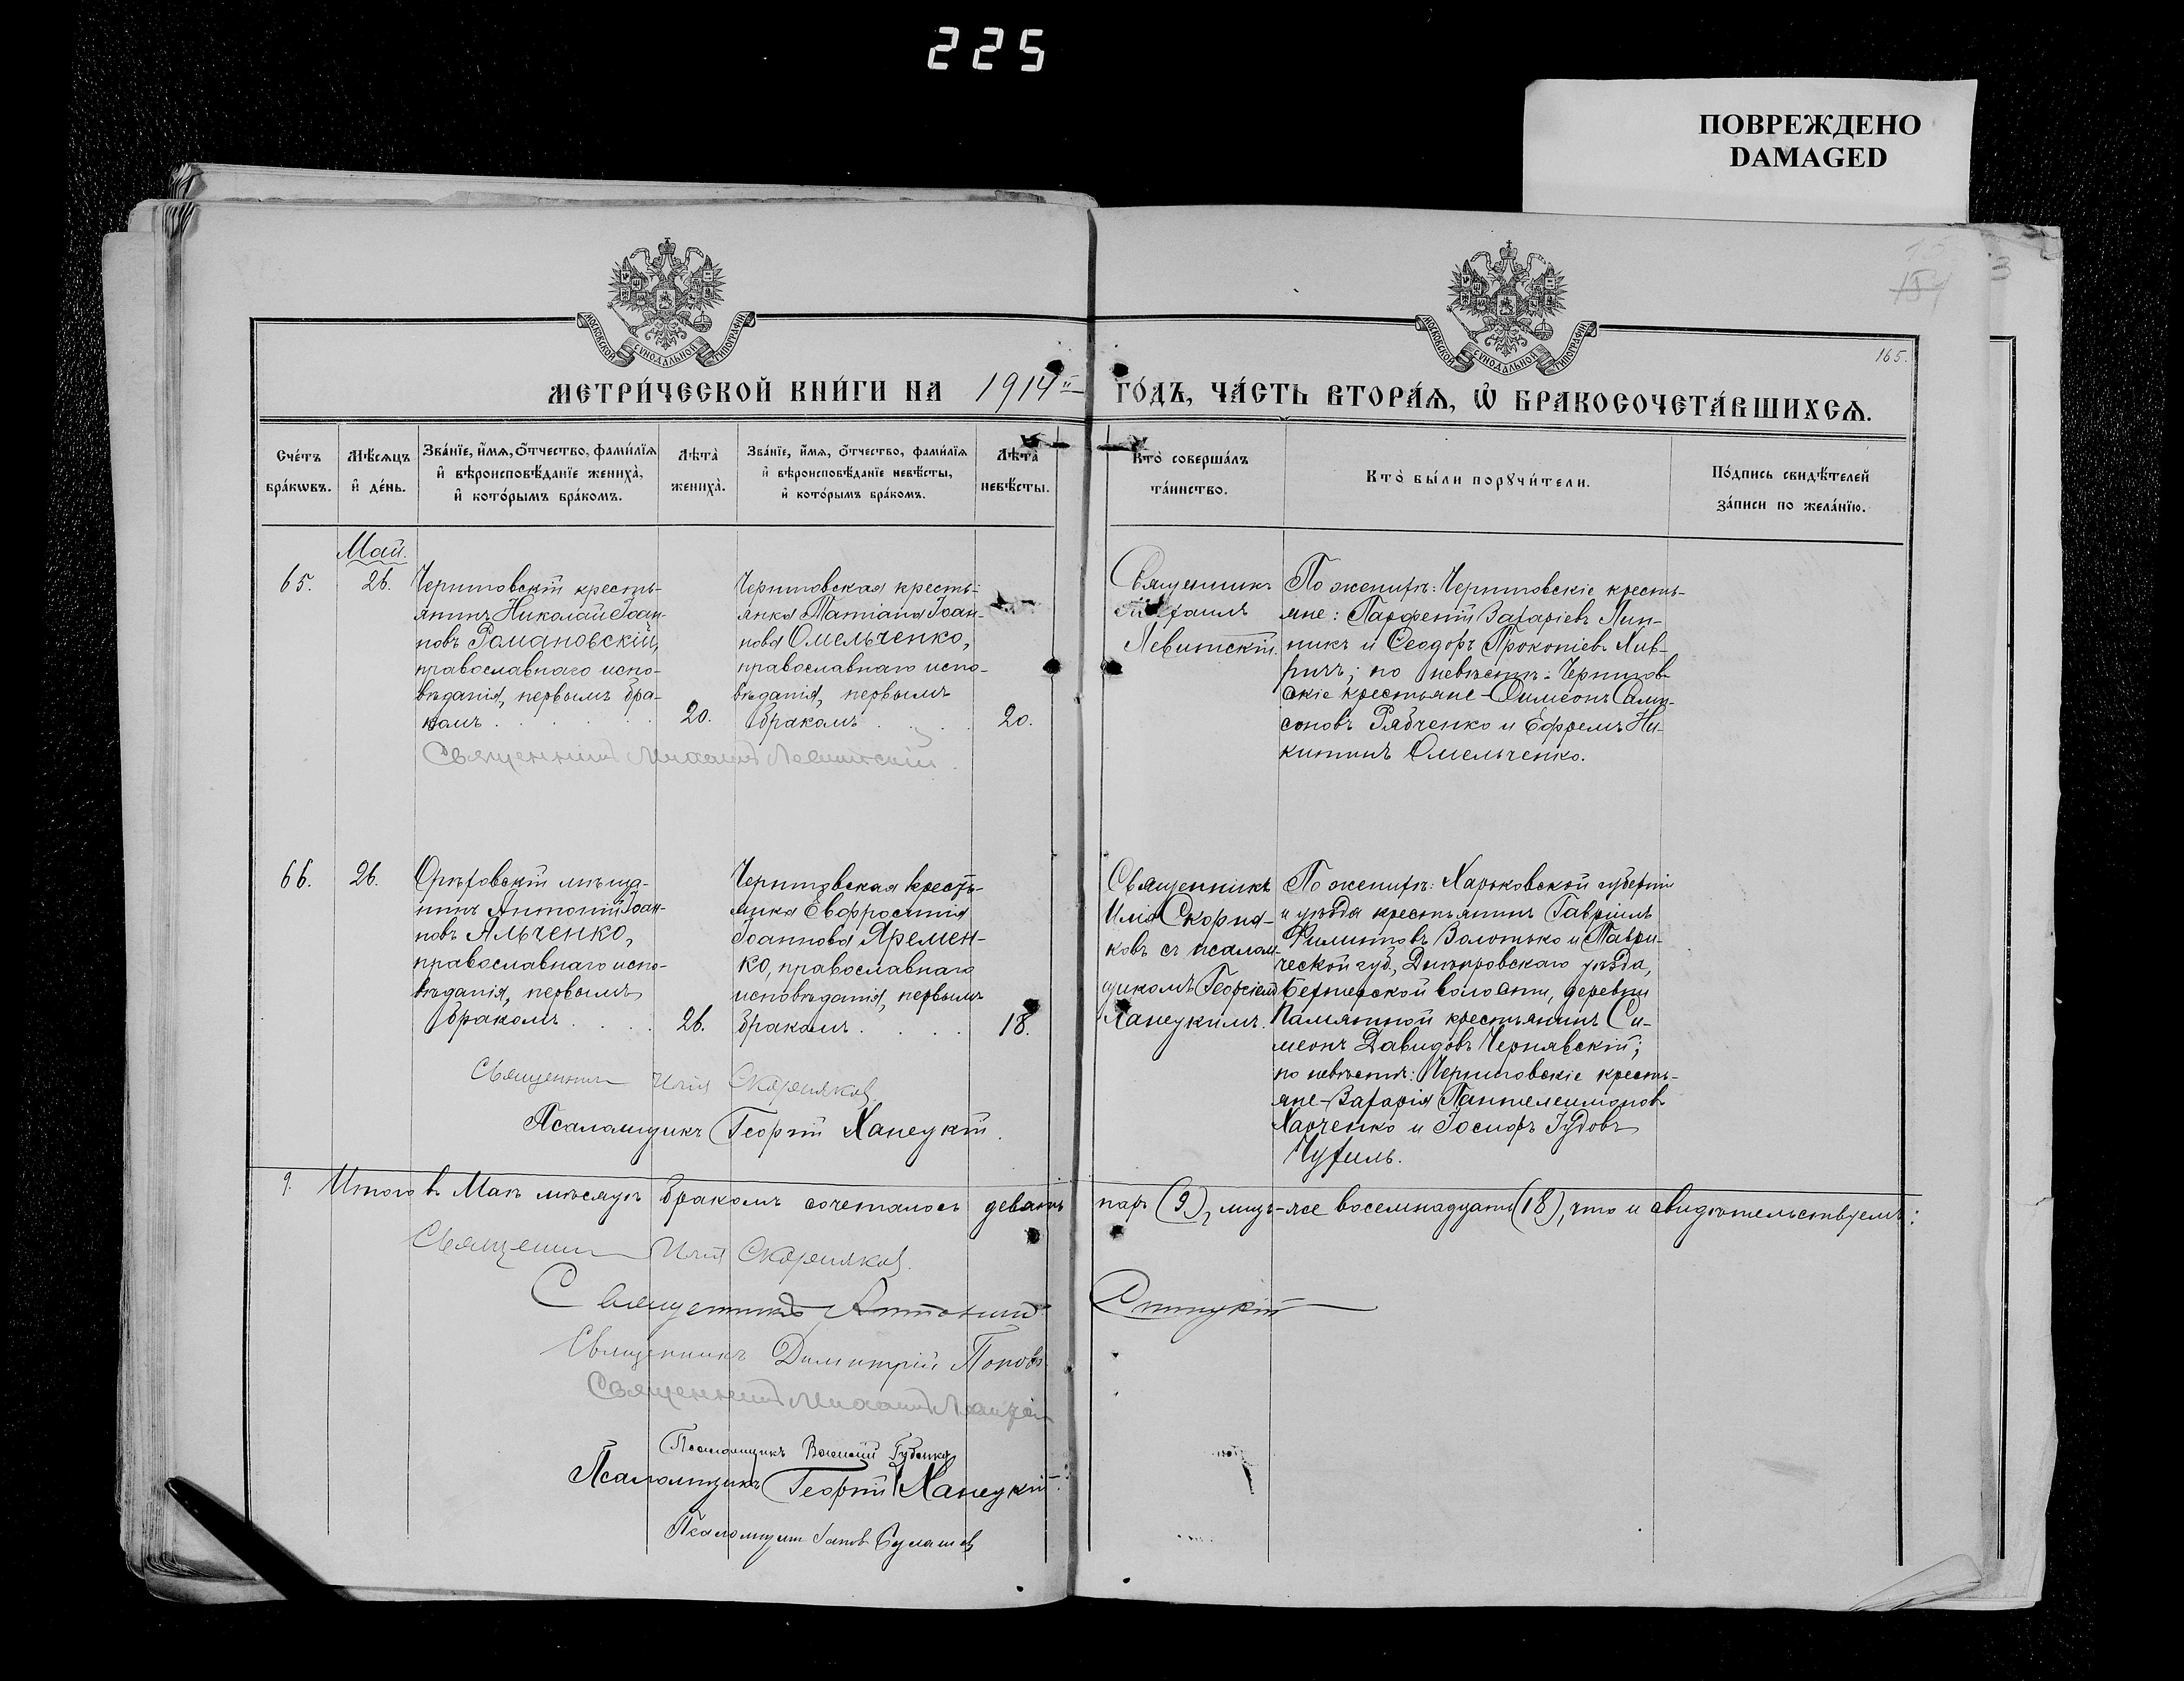 225
ПОВРЕЖДЕНО
DAMAGED
МОСКОВСКОЙ СУНОДАЛЬНОЙ ТИПОГРАФІИ
МОСКОВСКОЙ СУНОДАЛЬНОЙ ТИПОГРАФІИ
154
3
165.
МЕТРИ́ЧЕСКОЙ КНИ́ГИ НА 1914й ГО́ДЪ, ЧА́СТЬ ВТОРА́Ѧ, Ѡ҆ БРАКОСОЧЕТА́ВШИХСѦ.
Сче́тъ
бра́кѡвъ.
Мѣ́сяцъ
и҆ де́нь.
Зва́нїе, и҆́мѧ, ѻ҆́тчество, фами́лїѧ
и҆ вѣроисповѣ́данїе жениха̀,
и҆ кото́рымъ бра́комъ.
Лѣта̀
жениха̀.
Зва́нїе, и҆́мѧ, ѻ҆́тчество, фами́лїѧ
и҆ вѣроисповѣ́данїе невѣ́сты,
и҆ кото́рымъ бра́комъ.
Лѣта̀
невѣ́сты.
Кто̀ соверша́лъ
та́инство.
Кто̀ бы́ли порꙋчи́тели.
По́дпись свидѣ́телей
за́писи по жела́нїю.
Май.
65.
26.
Черниговскій кресть-
янинъ Николай Іоан-
новъ Романовскій,
православнаго испо-
вѣданія, первымъ бра-
комъ . . . . .
20.
Черниговская кресть-
янка Татіана Іоан-
нова Омельченко,
православнаго испо-
вѣданія, первымъ
бракомъ . . .
20.
Священникъ
Михаилъ
Левитскій.
По женихѣ: Черниговскіе кресть-
яне: Парфеній Захаріевъ Лин-
никъ и Ѳеодоръ Прокопіевъ Хив-
ричъ; по невѣстѣ: Чернигов-
скіе крестьяне - Симеонъ Самп-
соновъ Рябченко и Ефремъ Ни-
китинъ Омельченко.
Священникъ Михаилъ Левитскій.
66.
26.
Орѣховскій мѣща-
нинъ Антоній Іоан-
новъ Альченко,
православнаго испо-
вѣданія, первымъ
бракомъ . . . .
26.
Черниговская кресть-
янка Евфросинія
Іоаннова Яремен-
ко, православнаго
исповѣданія, первымъ
бракомъ . . . .
18.
Священникъ
Илія Скорня-
ковъ съ псалом-
щикомъ Георгіемъ
Ханецкимъ.
По женихѣ: Харьковской губерніи
и уѣзда крестьянинъ Гавріилъ
Филипповъ Золотько и Таври-
ческой губ., Днѣпровскаго уѣзда,
волости, деревни
Памятной крестьянинъ Си-
меонъ Давидовъ Чернявскій;
по невѣстѣ: Черниговскіе кресть-
яне - Захарія Пантелеимоновъ
Харченко и Іосифъ Іудовъ
Чухиль.
Священникъ Илія Скорняковъ.
Псаломщикъ Георгій Ханецкій.
9. Итого въ Маѣ мѣсяцѣ бракомъ сочеталось девять паръ (9), лицъ-же восемнадцать (18), что и свидѣтельствуемъ:
Священникъ Илія Скорняковъ.
Священникъ Антоній
Священникъ Димитрій Поповъ
Священникъ Михаилъ Левитскій
Псаломщикъ Василій
Псаломщикъ Георгій Ханецкій.
Псаломщикъ